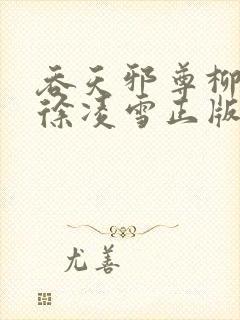 吞天邪尊柳
徐凌雪正版
尤善